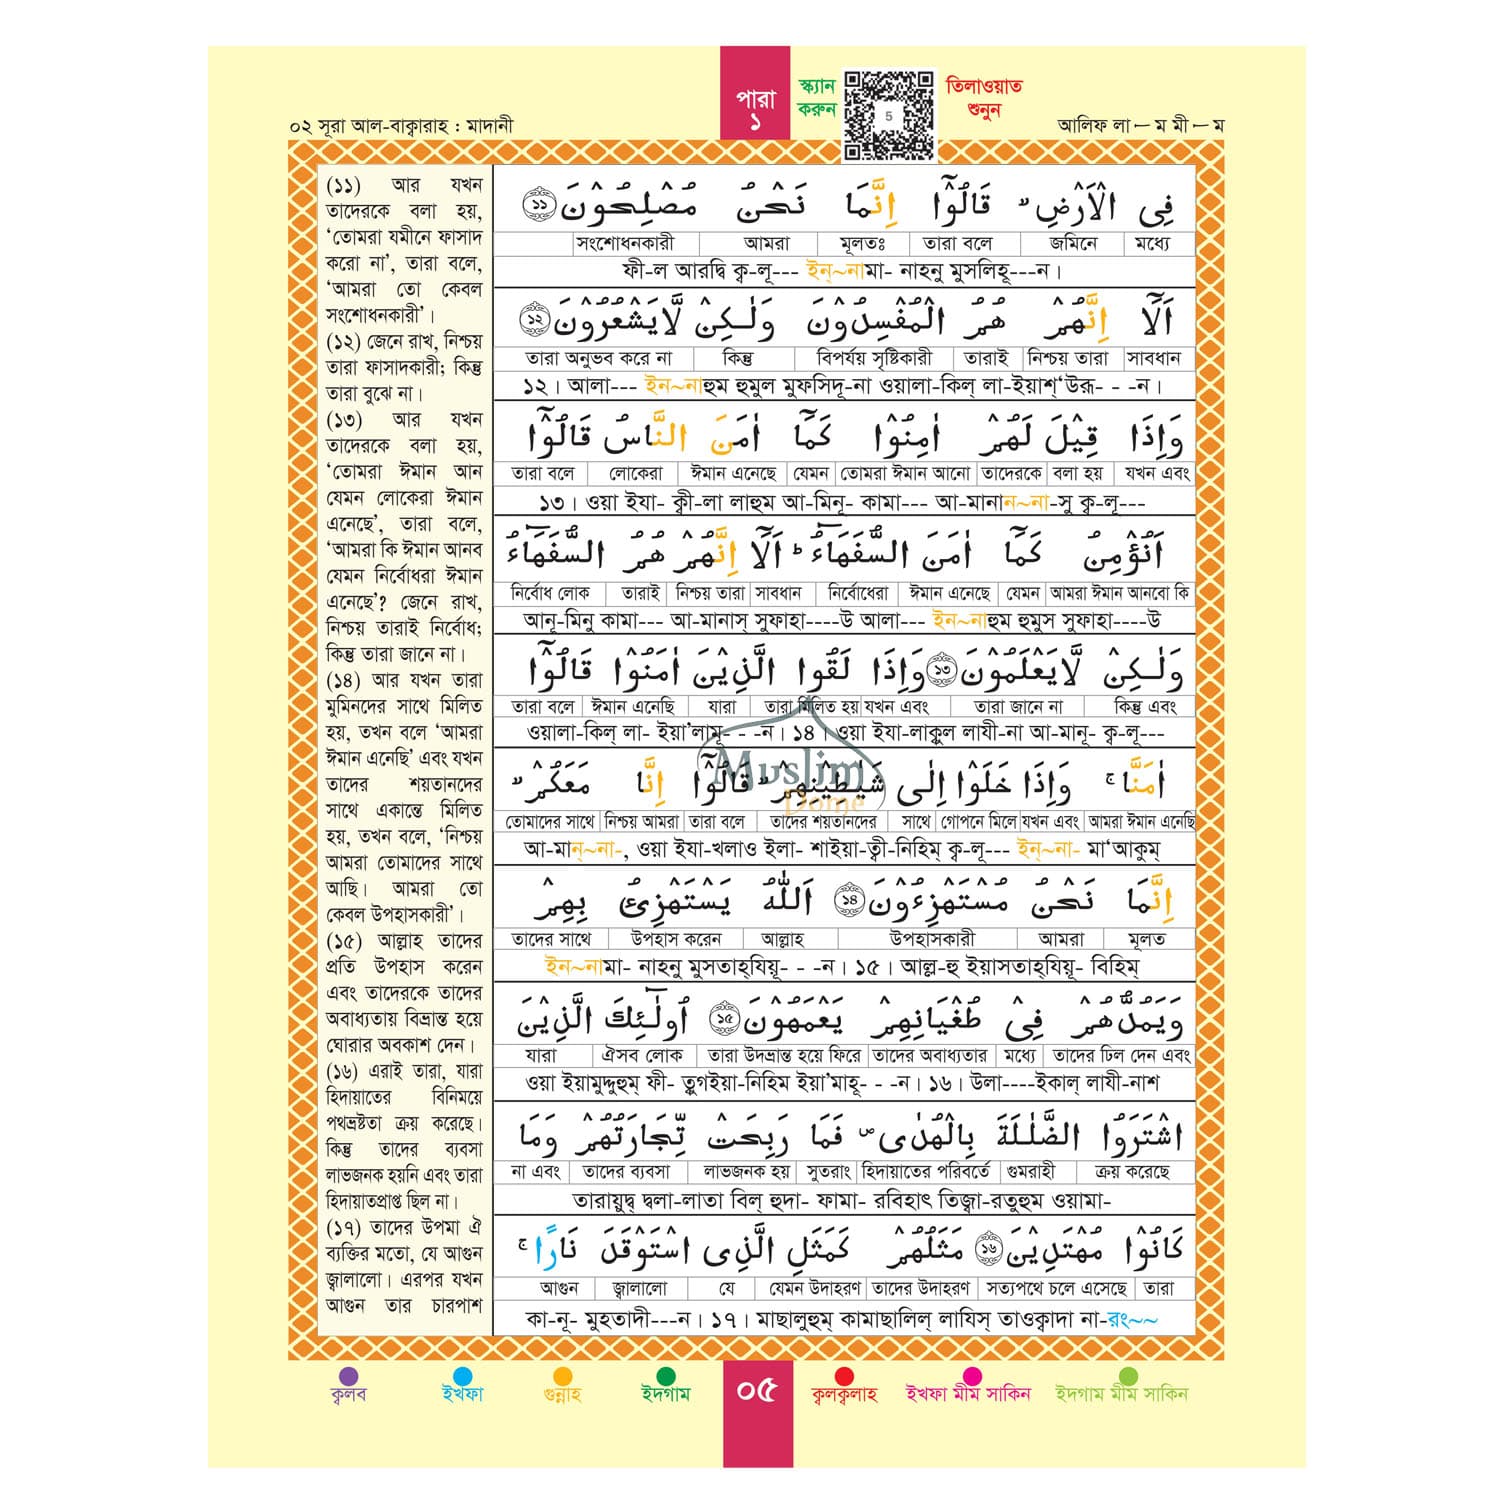 পারা
১
স্ক্যান
করুন
5
তিলাওয়াত
শুনুন
০২ সূরা আল-বাক্বারাহ : মাদানী
আলিফ লা — ম মী — ম
(১১) আর যখন
তাদেরকে বলা হয়,
‘তোমরা যমীনে ফাসাদ
করো না’, তারা বলে,
‘আমরা তো কেবল
সংশোধনকারী’।
(১২) জেনে রাখ, নিশ্চয়
তারা ফাসাদকারী; কিন্তু
তারা বুঝে না।
(১৩) আর যখন
তাদেরকে বলা হয়,
‘তোমরা ঈমান আন
যেমন লোকেরা ঈমান
এনেছে’, তারা বলে,
‘আমরা কি ঈমান আনব
যেমন নির্বোধরা ঈমান
এনেছে’? জেনে রাখ,
নিশ্চয় তারাই নির্বোধ;
কিন্তু তারা জানে না।
(১৪) আর যখন তারা
মুমিনদের সাথে মিলিত
হয়, তখন বলে ‘আমরা
ঈমান এনেছি’ এবং যখন
তাদের শয়তানদের
সাথে একান্তে মিলিত
হয়, তখন বলে, ‘নিশ্চয়
আমরা তোমাদের সাথে
আছি। আমরা তো
কেবল উপহাসকারী’।
(১৫) আল্লাহ তাদের
প্রতি উপহাস করেন
এবং তাদেরকে তাদের
অবাধ্যতায় বিভ্রান্ত হয়ে
ঘোরার অবকাশ দেন।
(১৬) এরাই তারা, যারা
হিদায়াতের বিনিময়ে
পথভ্রষ্টতা ক্রয় করেছে।
কিন্তু তাদের ব্যবসা
লাভজনক হয়নি এবং তারা
হিদায়াতপ্রাপ্ত ছিল না।
(১৭) তাদের উপমা ঐ
ব্যক্তির মতো, যে আগুন
জ্বালালো। এরপর যখন
আগুন তার চারপাশ
فِى الْاَرْضِ ۙ قَالُوْٓا اِنَّمَا نَحْنُ مُصْلِحُوْنَ ১১
সংশোধনকারী আমরা মূলতঃ তারা বলে জমিনে মধ্যে
ফী-ল আরদ্বি ক্ব-লূ--- ইন্~নামা- নাহনু মুসলিহূ---ন।
اَلَآ اِنَّهُمْ هُمُ الْمُفْسِدُوْنَ وَلٰكِنْ لَّا يَشْعُرُوْنَ ১২
তারা অনুভব করে না কিন্তু বিপর্যয় সৃষ্টিকারী তারাই নিশ্চয় তারা সাবধান
১২। আলা--- ইন~নাহুম হুমুল মুফসিদূ-না ওয়ালা-কিল্ লা-ইয়াশ্‘উরূ- - -ন।
وَاِذَا قِيْلَ لَهُمْ اٰمِنُوْا كَمَآ اٰمَنَ النَّاسُ قَالُوْٓا
তারা বলে লোকেরা ঈমান এনেছে যেমন তোমরা ঈমান আনো তাদেরকে বলা হয় যখন এবং
১৩। ওয়া ইযা- ক্বী-লা লাহুম আ-মিনূ- কামা--- আ-মানান~না-সু ক্ব-লূ---
اَنُؤْمِنُ كَمَآ اٰمَنَ السُّفَهَآءُ ؕ اَلَآ اِنَّهُمْ هُمُ السُّفَهَآءُ
নির্বোধ লোক তারাই নিশ্চয় তারা সাবধান নির্বোধেরা ঈমান এনেছে যেমন আমরা ঈমান আনবো কি
আনূ-মিনু কামা--- আ-মানাস্ সুফাহা----উ আলা--- ইন~নাহুম হুমুস সুফাহা----উ
وَلٰكِنْ لَّا يَعْلَمُوْنَ ১৩ وَاِذَا لَقُوا الَّذِيْنَ اٰمَنُوْا قَالُوْٓا
তারা বলে ঈমান এনেছি যারা তারা মিলিত হয় যখন এবং তারা জানে না কিন্তু এবং
ওয়ালা-কিল্ লা- ইয়া’লামূ- - -ন। ১৪। ওয়া ইযা-লাক্বুল লাযী-না আ-মানূ- ক্ব-লূ---
Muslim
Dome
اٰمَنَّا ۚ وَاِذَا خَلَوْا اِلٰى شَيٰطِيْنِهِمْ ۙ قَالُوْٓا اِنَّا مَعَكُمْ ۙ
তোমাদের সাথে নিশ্চয় আমরা তারা বলে তাদের শয়তানদের সাথে গোপনে মিলে যখন এবং আমরা ঈমান এনেছি
আ-মান্~না-, ওয়া ইযা-খলাও ইলা- শাইয়া-ত্বী-নিহিম্ ক্ব-লূ--- ইন্~না- মা‘আকুম্
اِنَّمَا نَحْنُ مُسْتَهْزِءُوْنَ ১৪ اَللّٰهُ يَسْتَهْزِئُ بِهِمْ
তাদের সাথে উপহাস করেন আল্লাহ উপহাসকারী আমরা মূলত
ইন~নামা- নাহনু মুসতাহ্‌যিয়ূ- - -ন। ১৫। আল্ল-হু ইয়াসতাহ্‌যিয়ূ- বিহিম্
وَيَمُدُّهُمْ فِىْ طُغْيَانِهِمْ يَعْمَهُوْنَ ১৫ اُولٰٓئِكَ الَّذِيْنَ
যারা ঐসব লোক তারা উদভ্রান্ত হয়ে ফিরে তাদের অবাধ্যতার মধ্যে তাদের ঢিল দেন এবং
ওয়া ইয়ামুদ্দুহুম্ ফী- ত্বুগইয়া-নিহিম ইয়া’মাহূ- - -ন। ১৬। উলা----ইকাল্ লাযী-নাশ
اشْتَرَوُا الضَّلٰلَةَ بِالْهُدٰى ۪ فَمَا رَبِحَتْ تِّجَارَتُهُمْ وَمَا
না এবং তাদের ব্যবসা লাভজনক হয় সুতরাং হিদায়াতের পরিবর্তে গুমরাহী ক্রয় করেছে
তারায়ুদ্ব দ্বলা-লাতা বিল্ হুদা- ফামা- রবিহাৎ তিজ্বা-রতুহুম ওয়ামা-
كَانُوْا مُهْتَدِيْنَ ১৬ مَثَلُهُمْ كَمَثَلِ الَّذِى اسْتَوْقَدَ نَارًا ۚ
আগুন জ্বালালো যে যেমন উদাহরণ তাদের উদাহরণ সত্যপথে চলে এসেছে তারা
কা-নূ- মুহতাদী---ন। ১৭। মাছালুহুম্ কামাছালিল্ লাযিস্ তাওক্বাদা না-রং~~
ক্বলব ইখফা গুন্নাহ ইদগাম ০৫ ক্বলক্বলাহ ইখফা মীম সাকিন ইদগাম মীম সাকিন